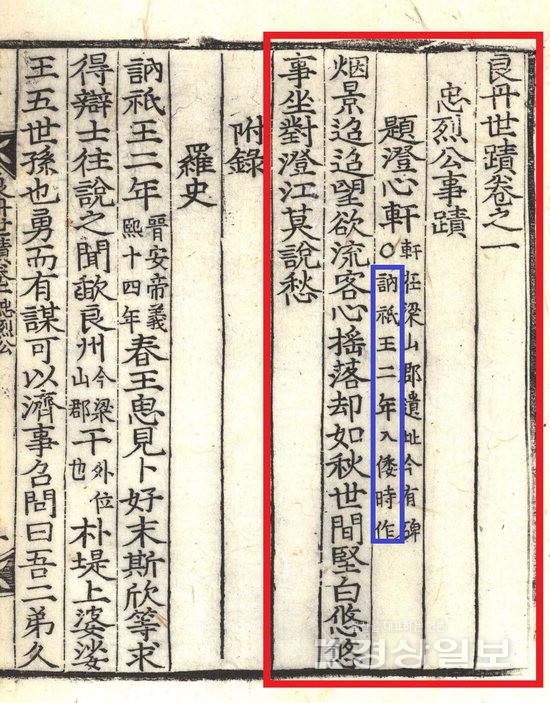 良丹世蹟卷之一
忠烈公事蹟
題澄心軒○軒在梁山郡遺址今有碑
訥祇王二年入倭時作
烟景迢迢望欲流客心搖落却如秋世間堅白悠悠
事坐對澄江莫說愁
附錄
羅史
訥祇王二年晉安帝義熙十四年春王思見卜好末斯欣等求
得辯士往說之聞歃良州今梁山郡也干外位朴堤上婆娑
王五世孫也勇而有謀可以濟事召問曰吾二弟久
경상일보